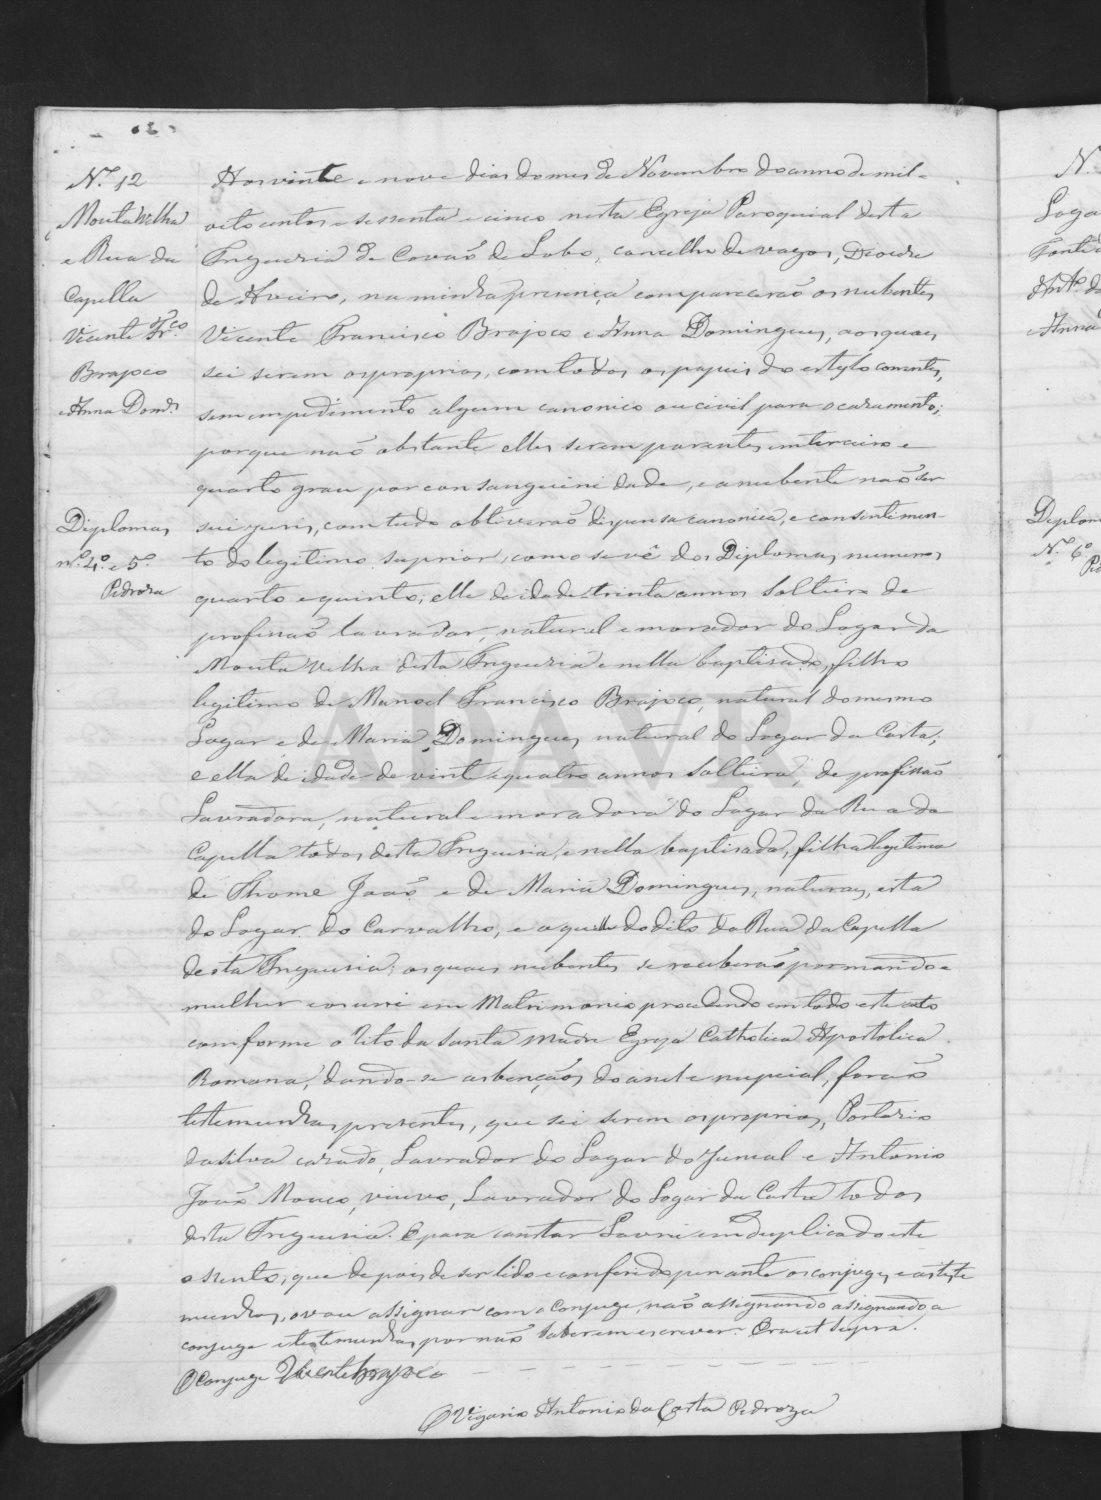 N.º 12
Mouta Velha
e Rua da
Capella
Vicente Fr.co
Brajoco
e Anna Dom.s
Diplomas
n.os 4.º e 5.º
Pedroza
Aos vinte e nove dias do mes de Novembro do anno de mil e
oito centos e sessenta e cinco nesta Egreja Paroquial desta
Freguesia de Covaõ de Lobo, concelho de vagos, Diocese
de Aveiro, na minha presença comparecerão os nubentes
Vicente Francisco Brajoco e Anna Domingues, aos quaes
sei serem os proprios, com todos os papeis do estylo correntes,
sem empedimento algum canonico ou civil para o casamento;
porque não obstante elles serem parentes em terceiro e
quarto grau por consanguinidade, e a nubente não ser
sui juris, com tudo obtiverão dispensa canonica, e consentimen-
to do legitimo superior, como se vê dos Diplomas numeros
quarto e quinto; elle de idade trinta annos solteiro de
profissão lavrador, natural e morador do Logar da
Mouta Velha desta Freguesia e nella baptisado, filho
legitimo de Manoel Francisco Brajoco, natural do mesmo
Logar e de Maria Domingues natural do Logar da Costa;
e ella de idade de vinte e quatro annos solteira, de profissão
Lavradora, natural e moradora do Logar da Rua da
Capella todos desta Freguesia, e nella baptisada, filha legitima
de Thome João e de Maria Domingues, naturaes, esta
do Logar do Carvalho, e aquelle do dito da Rua da Capella
desta Freguesia; os quaes nubentes se receberão por marido e
mulher e os uni em Matrimonio procedendo em todo este acto
conforme o rito da Santa Madre Egreja Catholica Apostolica
Romana, dando-se as benções do anel e nupcial, forão
testemunhas presentes, que sei serem os proprios,
da Silva casado, Lavrador do Logar do Juncal e Antonio
João Mouco, viuvo, Lavrador do Logar da Costa todos
desta Freguesia. E para constar Lavrei em duplicado este
assento, que depois de ser lido e conferido perante os conjuges e as teste
munhas, o vou assignar com o Conjuge, não assignando assignando a
conjuge e testemunhas por não saberem escrever. Era ut supra.
O Conjuge Vicente brajoco
O Vigario Antonio da Costa Pedroza
ADAVR
N.
Loga
Fonte
Ant.º do
e Anna
Diplom
N.º 6.º
Pe